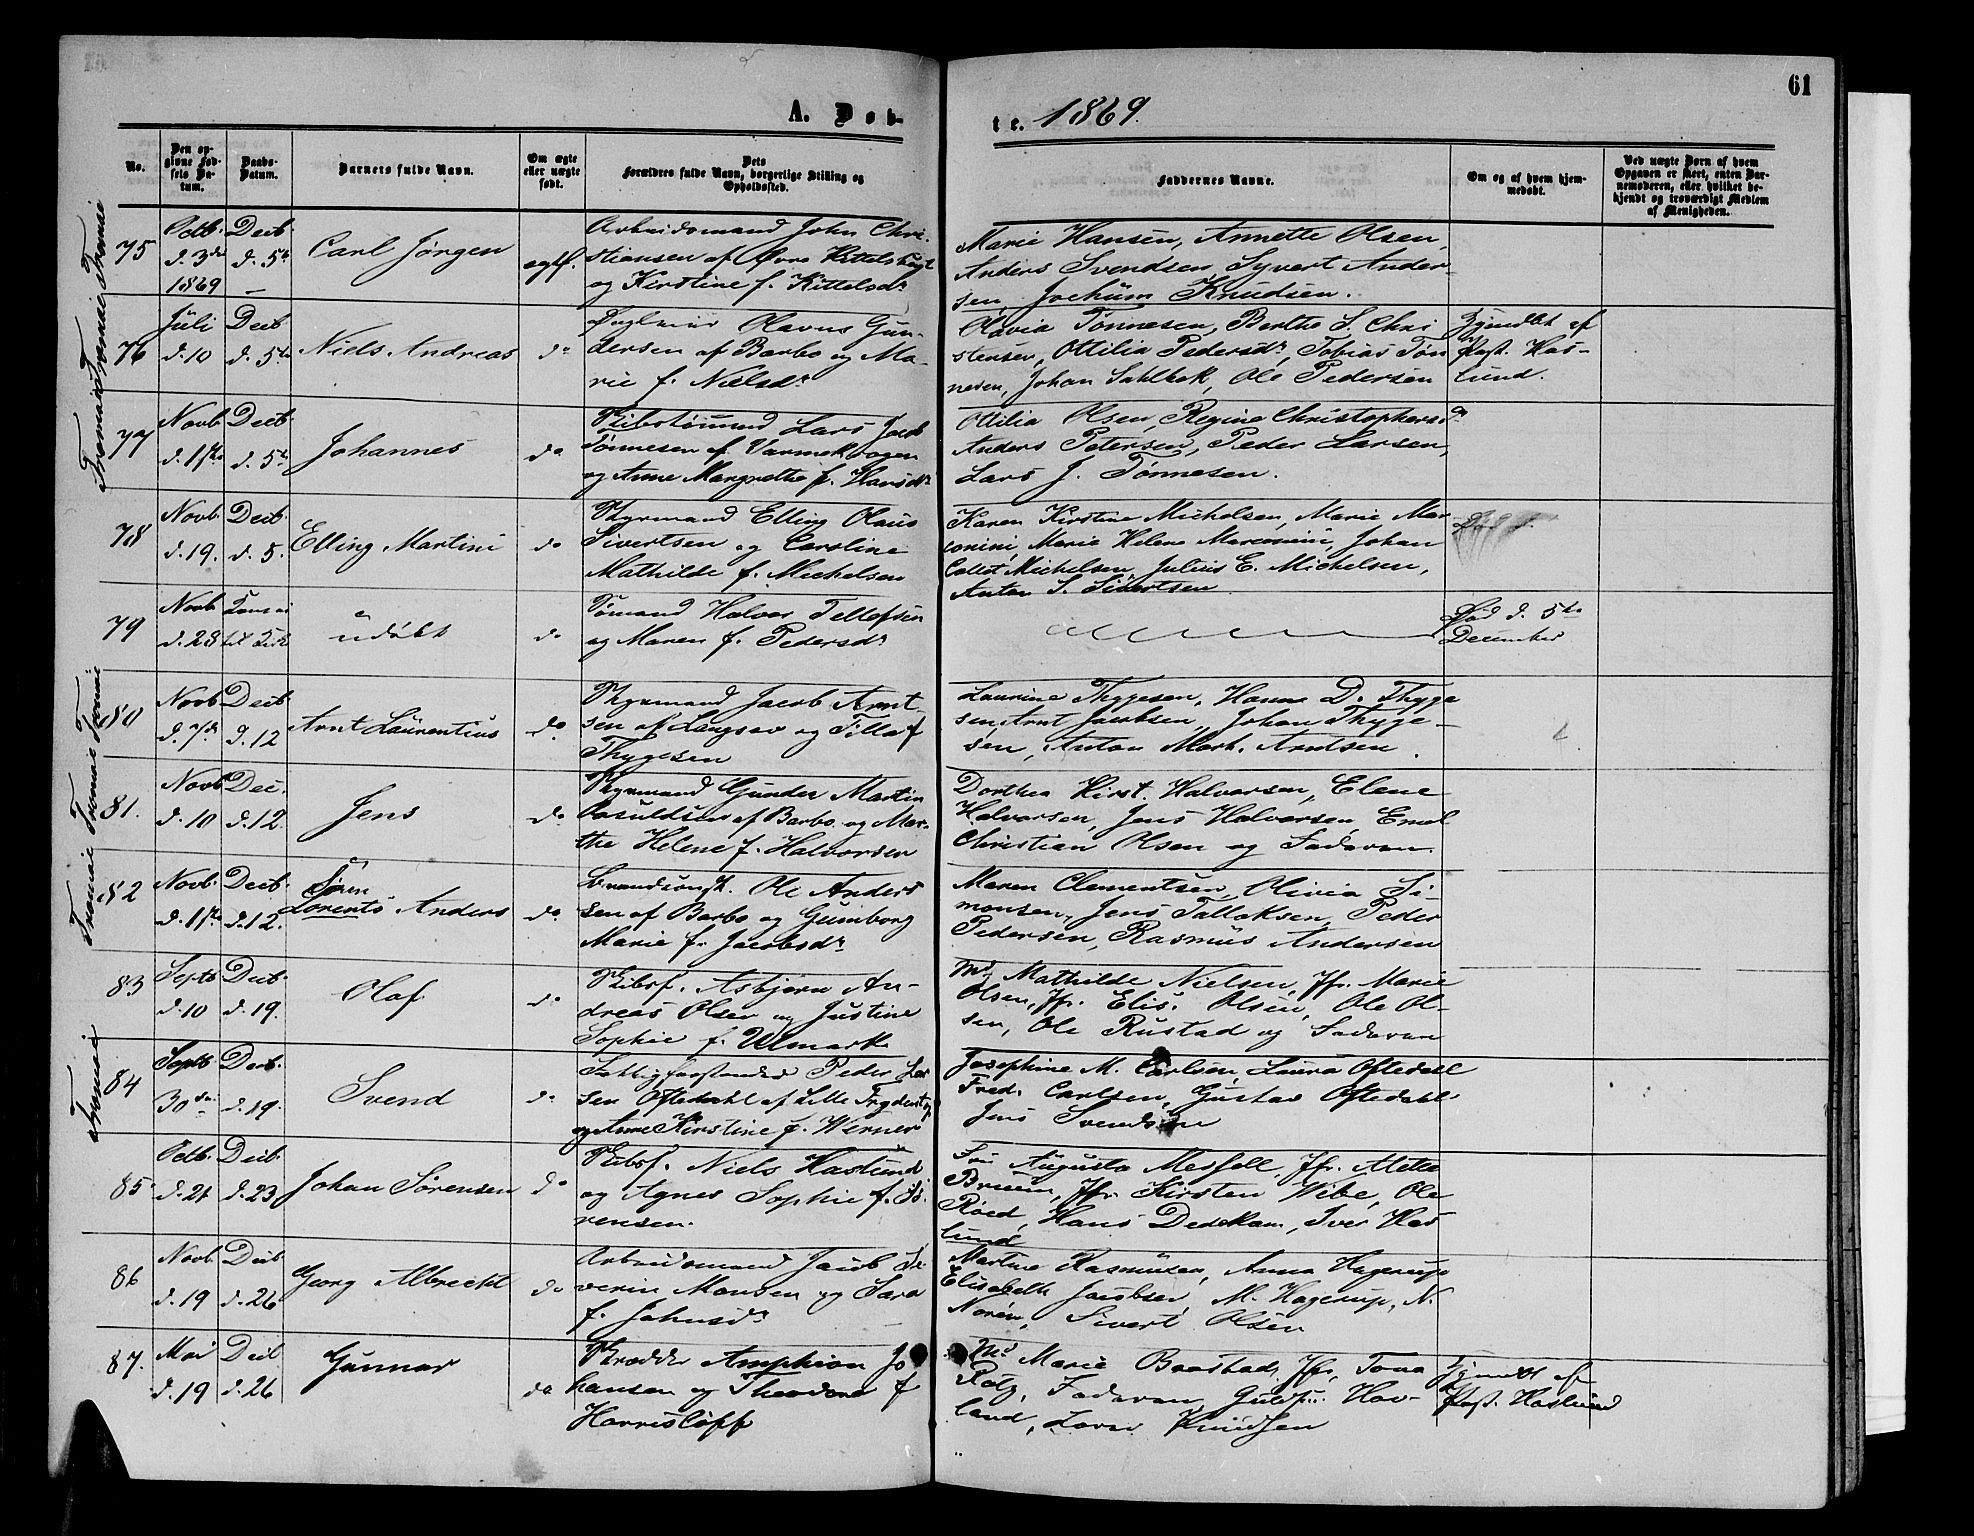 61
A. Døb-
te. 1869.
No.
Den opgivne Fødsels Datum.
Daabs-Datum.
Barnets fulde Navn.
Om ægte eller uægte født.
Dets Forældres fulde Navn, borgerlige Stilling og Opholdssted.
Faddernes Navne.
Om og af hvem hjemmedøbt.
Ved uægte Børn af hvem Opgaven er skeet, enten Barnemoderen, eller hvilket bekjendt og troværdigt Medlem af Menigheden.
75
Octb. d. 3die 1869
Decb. d. 5te
Carl Jørgen
ægtf.
Arbeidsmand John Chri-
stiansen af Øvre
og Kirstine f. Kittelsdr
Marie Hansen, Annette Olsen,
Anders Svendsen, Syvert Ander-
sen, Jochum Knudsen.
76
Juli d. 10
Decb d. 5te
Niels Andreas
do
Olavus Gun-
dersen af Barbo og Ma-
rie f. Nielsdr
Olavia Tønnesen, Berthe S. Chri
stensen, Ottilia Pedersdr, Tobias Tøn
nesen, Johan Sahlbek, Ole Pedersen
Hjemdbt af
Past. Has-
lund.
77
Novb d. 1ste
Decb. d. 5te
Johannes
do
Skibstømmd Lars Jacob
Tønnesen af
og Anne Margrethe f. Hansdr
Ottilia Olsen, Regine Christophersdr
Anders Petersen, Peder Larsen,
Lars J. Tønnesen.
78
Novb. d. 19.
Decb. d. 5.
Elling Martini
do
Styrmand Elling Olaus
Sivertsen og Caroline
Mathilde f. Michelsen
Karen Kirstine Michelsen, Marie Mar
conini, Marie Helene Johan
Collet Michelsen, Julius E. Michelsen,
Anton S. Sivertsen
79
Novb d. 28
udøbt
do
Sømand Halvor Tellefsen
og Maren f. Pedersdr
Død d. 5te
December
80
Novb d. 7de
Decb d. 12
Arnt Laurentius
do
Styrmand Jacob Arnt-
sen af Langsev og Tilla f
Thygesen
Laurine Thygesen, Hanna D. Thyge
sen, Arnt Jacobsen, Johan Thyge-
sen, Anton Mart. Arntsen.
81.
Novb d. 10
Dec. d. 12.
Jens
do
Styrmand Gunder Martin
Osuldsen af Barbo og Mar-
the Helene f. Halvorsen
Dorthea Kirst. Halvorsen, Elene
Halvorsen, Jens Halvorsen Emil
Christian Olsen og Faderen.
82
Novb. d. 1ste
Decb. d. 12.
Søren
Lorents Anders
do
Ole Anders
sen af Barbo og Gumborg
Marie f. Jacobsdr
Maren Clementsen, Olivia Si
monsen, Jens Tallaksen, Peder
Pedersen, Rasmus Andersen
83
Septb d. 10
Decb. d. 19.
Olaf
do
Skibsf. Asbjørn An-
dreas Olsen og Justine
Sophie f. Ulmark
Md. Mathilde Nielsen, Jfr. Marie
Olsen, Jfr. Elis. Olsen, Ole Ol-
sen, Ole Rustad og Faderen
84
Septb. 30te
Decb. d. 19.
Svend
do
Fattigforstander Peder Lar
sen Oftedahl af Lille
og Anne Kirstine f. Werner
Josephine M. Carlsen, Laura Oftedahl
Fred. Carlsen, Gustav Oftedahl
Jens Svendsen
85
Octb. d. 21
Decb. d. 23
Johan Sørensen
do
Skibsf. Niels Haslund
og Agnes Sophie f. Sø-
rensen.
Fru Augusta Jfr. Alette
Bruun, Jfr. Kirsten Wibe, Ole
Røed, Hans Dedekam, Iver Has
lund
86
Novb. d. 19
Decb d. 26
Georg Albrecht
do
Arbeidsmand Jacob Se
verin Monsen og Sara
f. Johnsdr
Martine Rasmusen, Anna Hagerup
Elisabeth Jacobsen, M. Hagerup, N.
Norén, Sivert Olsen
87.
Mai d. 19
Decb d. 26
Gunnar
do
Skrædder Amphion Jo
hansen og Theodora f
Harrisloff
Md Marie Baastad, Jfr. Tona
Faderen, Hav-
land, Knudsen
Hjemdt af
Past. Haslund